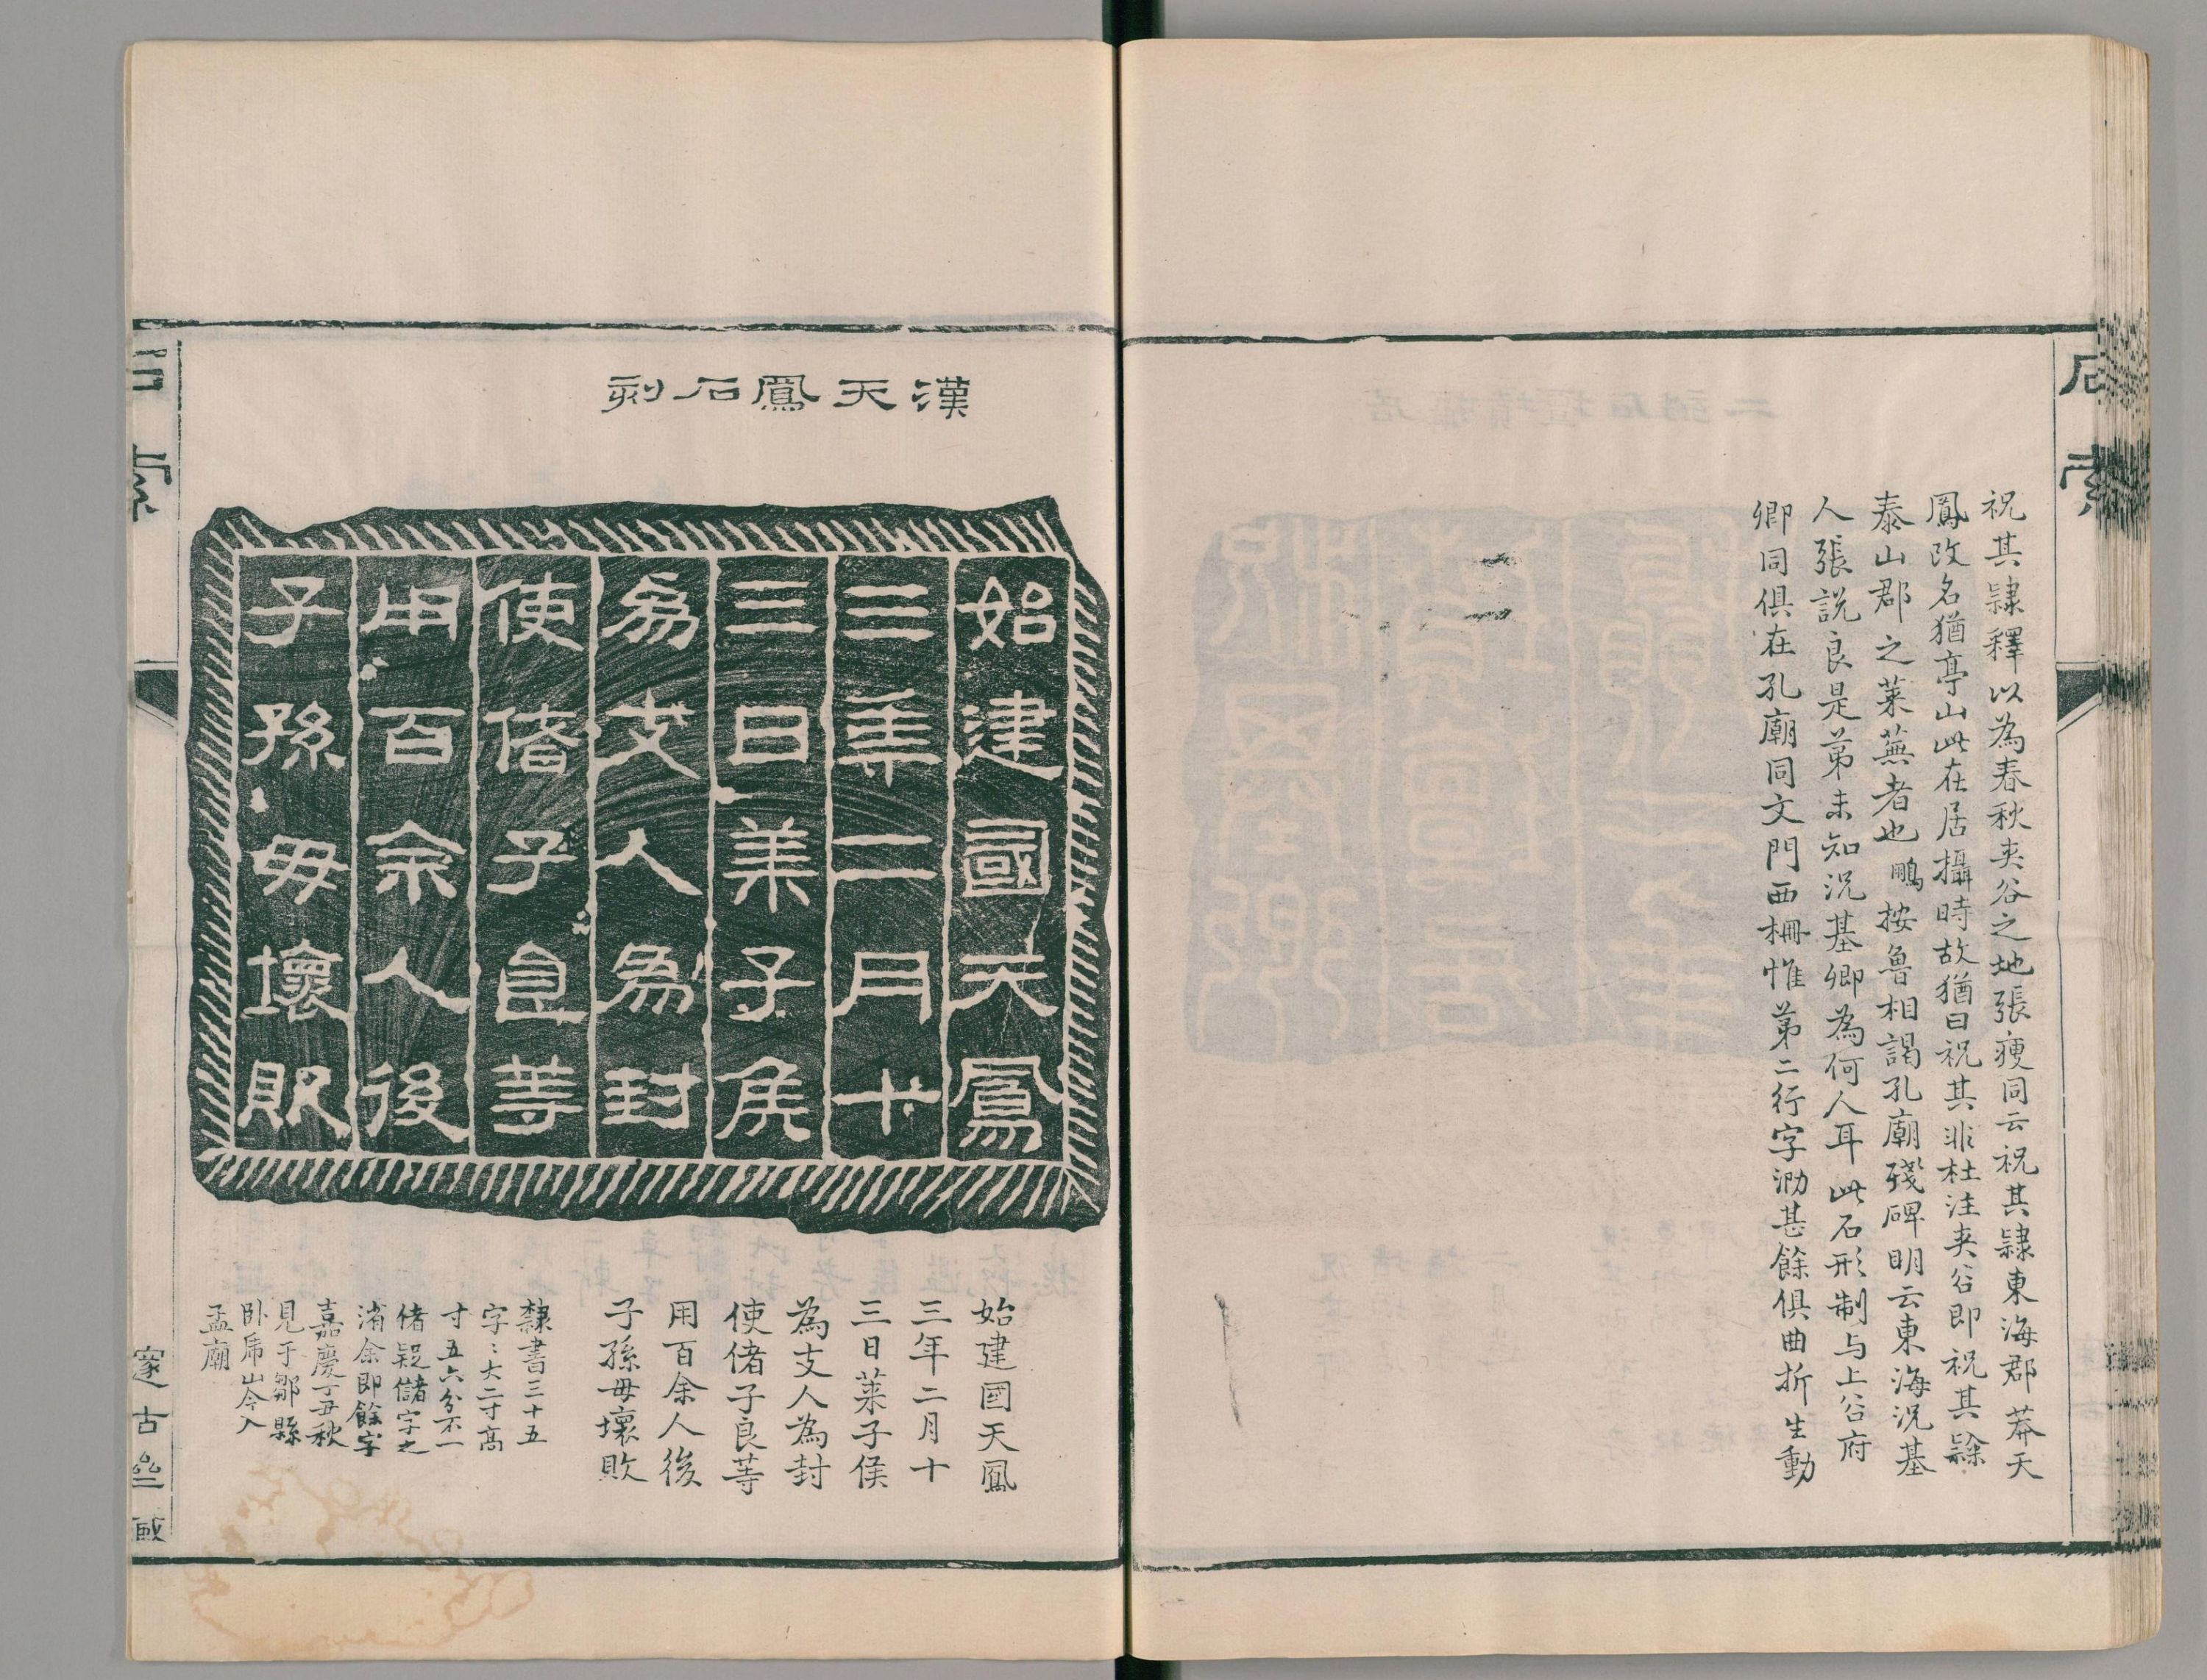 石索
祝其隷釋以為春秋夾谷之地張瘦同云祝其隷東海郡莽天
鳳改名猶亭山此在居攝時故猶曰祝其非杜注夾谷即祝其隸
泰山郡之萊蕪者也鵬按魯相謁孔廟殘碑明云東海況基
人張說良是第未知況基卿為何人耳此石形制与上谷府
卿同俱在孔廟同文門西柵惟第二行字泐甚餘俱曲折生動
漢天鳳石刻
始建國天鳳
三年二月十
三日萊子侯
為支人為封
使偖子良等
用百余人後
子孫毋壞敗
始建國天鳳
三年二月十
三日萊子侯
為支人為封
使偖子良等
用百余人後
子孫毋壞敗
隸書三十五
字〻大二寸高
寸五六分不一
偖疑儲字之
渻余即餘字
嘉慶丁丑秋
見于鄒縣
卧虎山今入
孟廟
石索
邃古齋藏